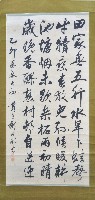 田家無五行水旱卜蛙聲
牛犢乘春放兒孫候暖耕
池塘煙未起桑柘雨初晴
歲晚香醪熟村村自送迎
乙卯